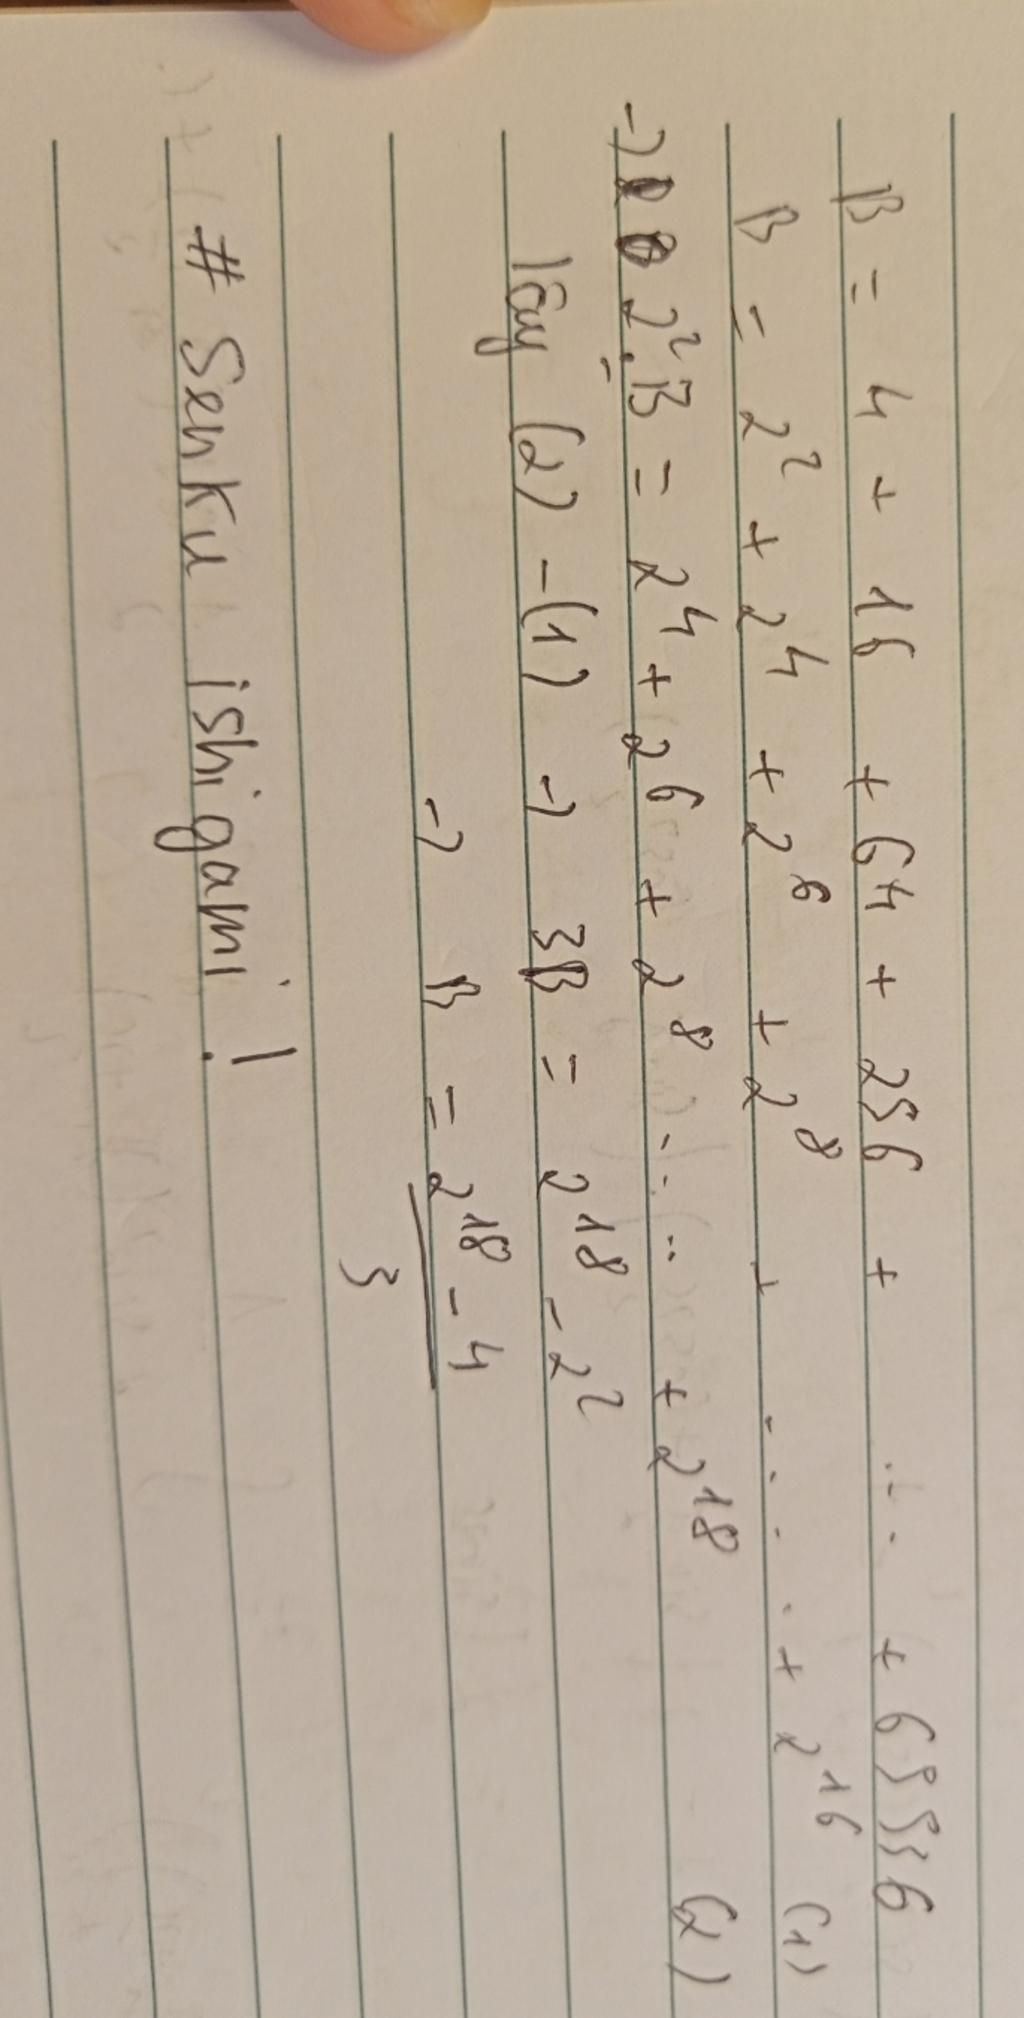 B = 4 + 16 + 64 + 256 + ... + 65536
B = 2² + 2⁴ + 2⁶ + 2⁸ + .... + 2¹⁶ (1)
-> 2².B = 2⁴ + 2⁶ + 2⁸ ...... + 2¹⁸ (2)
lấy (2) - (1) -> 3B = 2¹⁸ - 2²
-> B = 2¹⁸ - 4
3
# Senku ishigami !